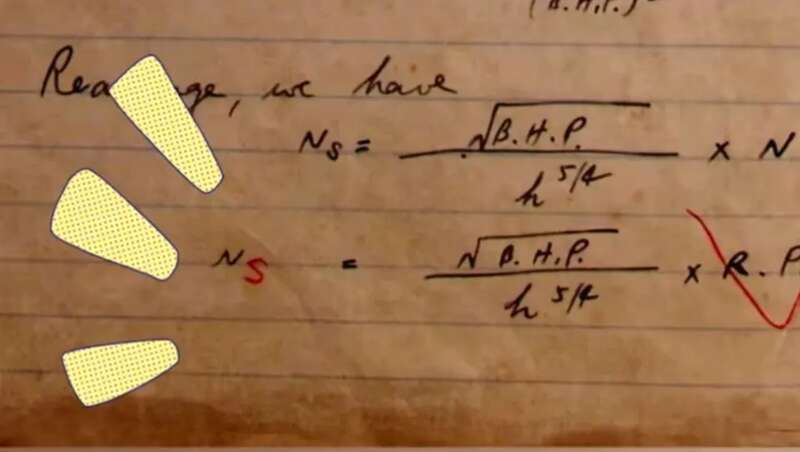 (B.H.P.)
we have
Ns = √B.H.P. / h^5/4 × N
Ns = √B.H.P. / h^5/4 × R.P